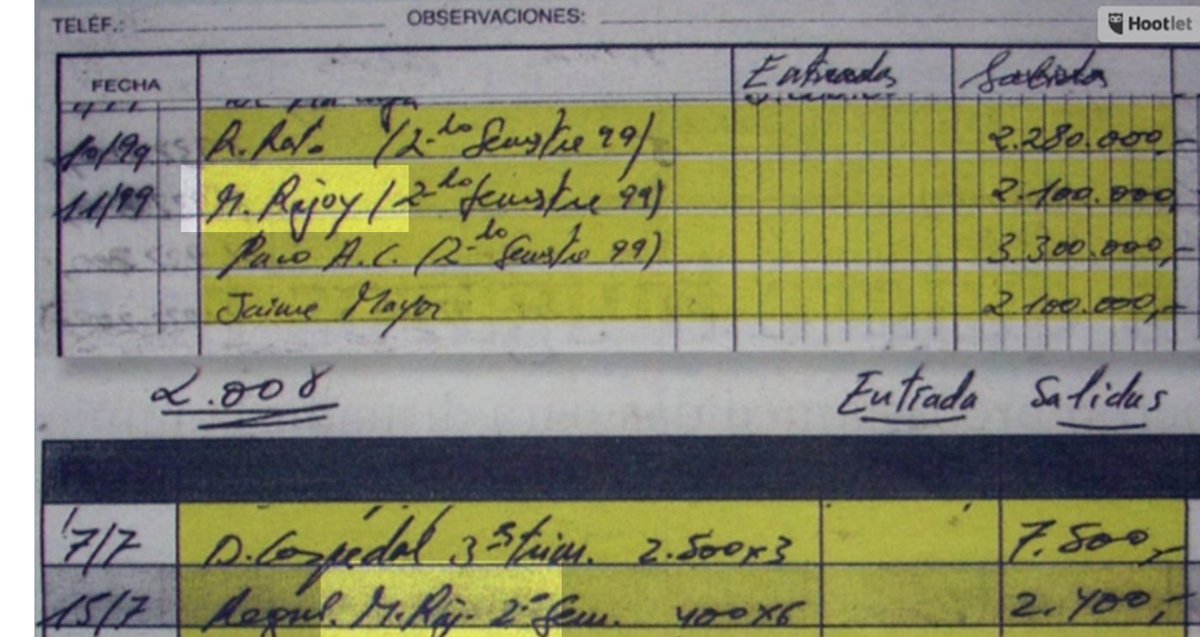 TELÉF.: OBSERVACIONES:
Hootlet
FECHA Entrada Salida
10/99 R. Rato (2-do Semestre 99) 2.280.000,-
11/99 M. Rajoy (2-do Semestre 99) 2.100.000,
Paco A.C. (2-do Semestre 99) 3.300.000,-
Jaime Mayor 2.100.000,-
2.008 Entrada Salidas
7/7 D. Cospedal 3er trim. 2.500x3 7.500,-
15/7 Regul. M. Raj. 2º Sem. 400x6 2.400,-